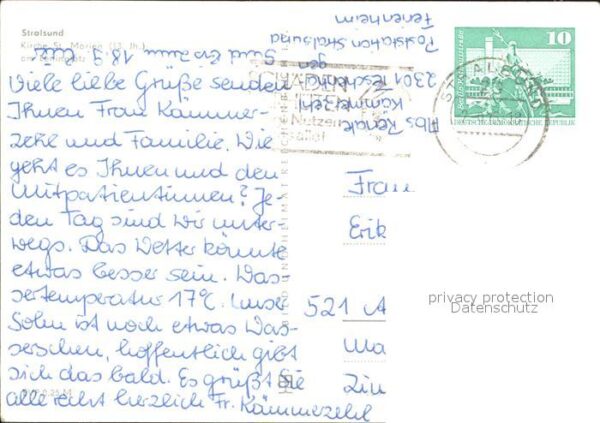 Stralsund
Kirche St. Marien (13. Jh.)
Viele liebe Grüße senden
Ihnen Frau Kämmer-
zehl und Familie. Wie
geht es Ihnen und den
Mitpatientinnen? Je-
den Tag sind wir unter-
wegs. Das Wetter könnte
etwas besser sein. Was-
sertemperatur 17°C. Unser
Sohn ist noch etwas Was-
serscheu, hoffentlich gibt
sich das bald. Es grüßt Sie
alle recht herzlich Fr. Kämmerzehl
Sind bis zum 18.7.
Abs. Renate
Kämmerzehl
2301
Poststation Stralsund
Ferienheim
10
DEUTSCHE DEMOKRATISCHE REPUBLIK
STRALSUND
Frau
Erik
521 A
Ma
Zin
privacy protection
Datenschutz